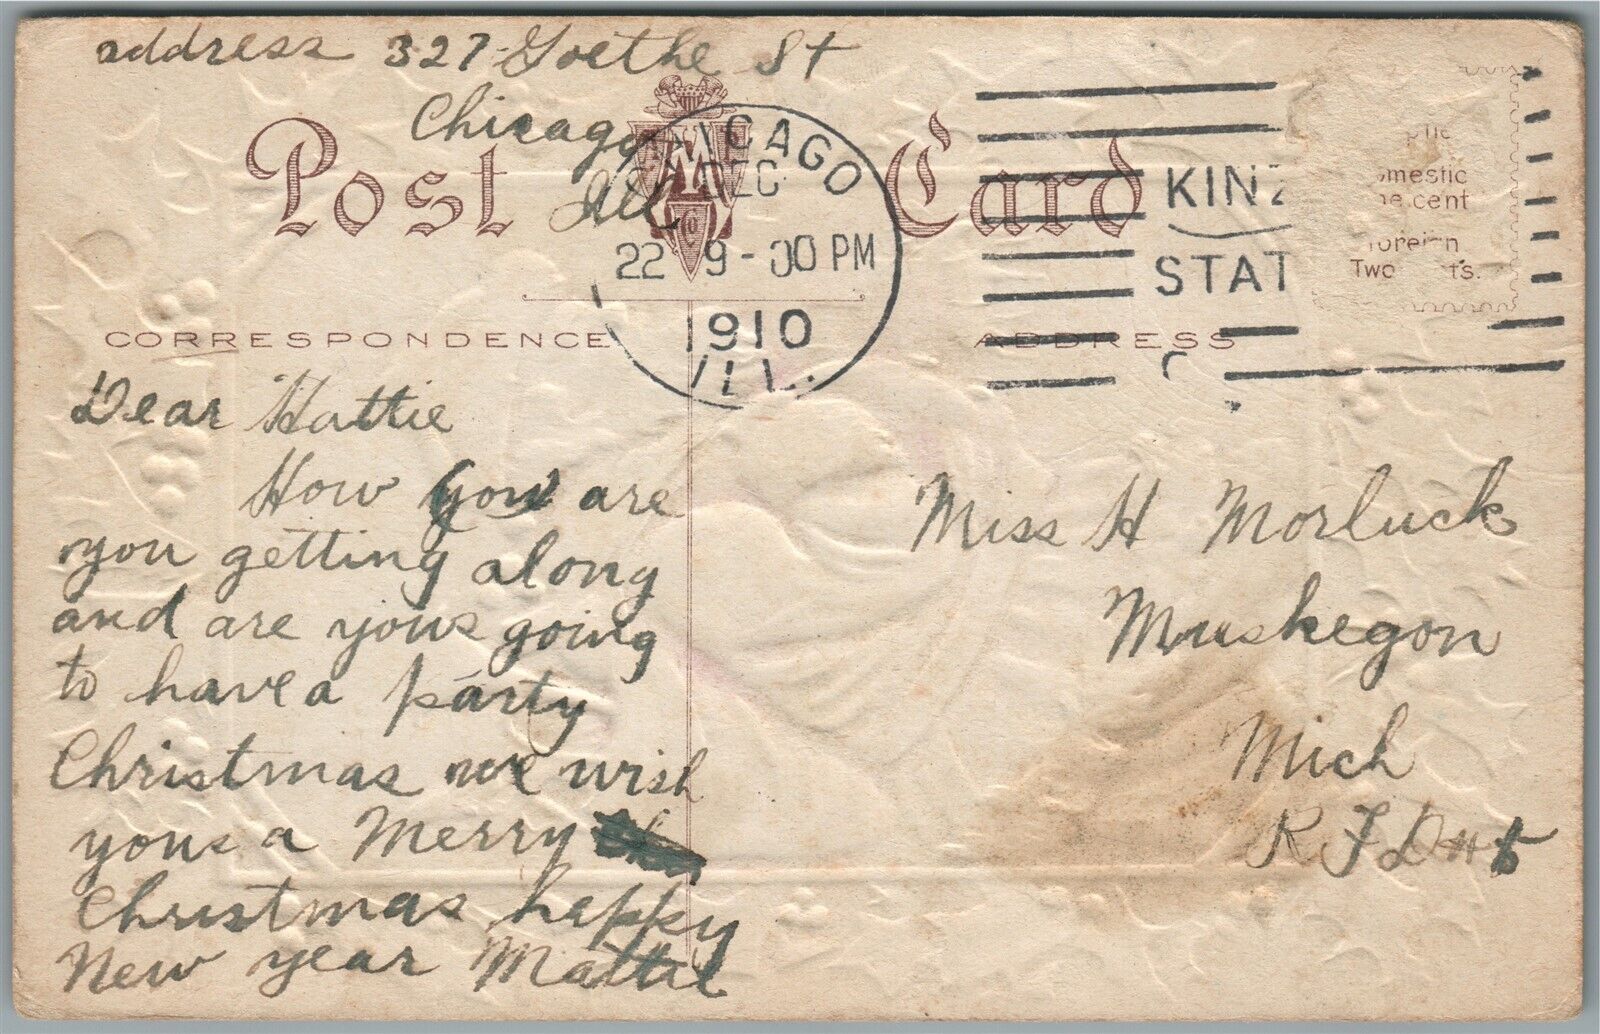 address 327 Goethe St
Chicago
Ill
Post Card
CHICAGO
DEC
22 9-00 PM
1910
ILL.
KINZ
STAT
mestic
cent
foreign
Two
CORRESPONDENCE
ADDRESS
Dear Hattie
How you are
you getting along
and are yous going
to have a party
Christmas we wish
yous a Merry
Christmas happy
New year Mattie
Miss H Morluck
Muskegon
Mich
R F D # 5